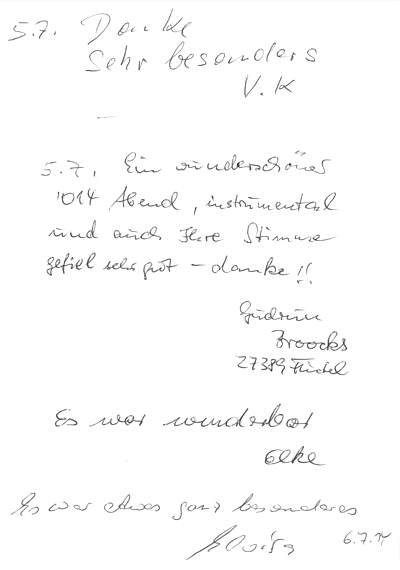 5.7. Danke
Sehr besonders
V. K
5.7. Ein wunderschönes
2014 Abend, instrumental
und auch Ihre Stimme
gefiel sehr gut – danke!!
Gudrun
Broocks
27389 Fintel
Es war wunderbar
Elke
Es war etwas ganz besonderes
6.7.14